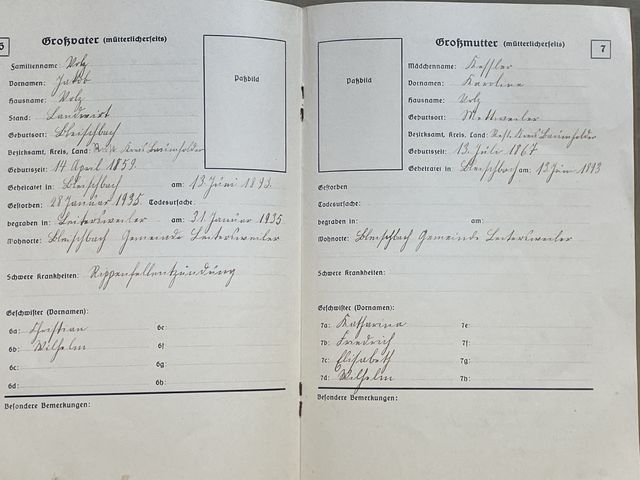 6
Großvater (mütterlicherseits)
Familienname: Volz
Vornamen: Jakob
Hausname: Volz
Stand: Landwirt
Geburtsort: Bleischbach
Bezirksamt, Kreis, Land: Rest Kreis Baumholder
Geburtszeit: 14 April 1859
Geheiratet in: Bleischbach am: 13 Juni 1893.
Gestorben: 28 Januar 1935. Todesursache:
begraben in: Leitersweiler am: 31. Januar 1935
Wohnorte: Bleischbach Gemeinde Leitersweiler
Schwere Krankheiten: Rippenfellentzündung
Geschwister (Vornamen):
6a: Christian 6e:
6b: Wilhelm 6f:
6c: 6g:
6d: 6h:
Besondere Bemerkungen:
Paßbild
Großmutter (mütterlicherseits)
7
Paßbild
Mädchenname: Keßler
Vornamen: Karolina
Hausname: Volz
Geburtsort: Mettweiler
Bezirksamt, Kreis, Land: Rest. Kreis Baumholder
Geburtszeit: 13. Juli 1867
Geheiratet in: Bleischbach am 13 Juni 1893
Gestorben
Todesursache:
begraben in: am:
Wohnorte: Bleischbach Gemeinde Leitersweiler
Schwere Krankheiten:
Geschwister (Vornamen):
7a: Katharina 7e:
7b: Friedrich 7f:
7c: Elisabeth 7g:
7d: Wilhelm 7h:
Besondere Bemerkungen: